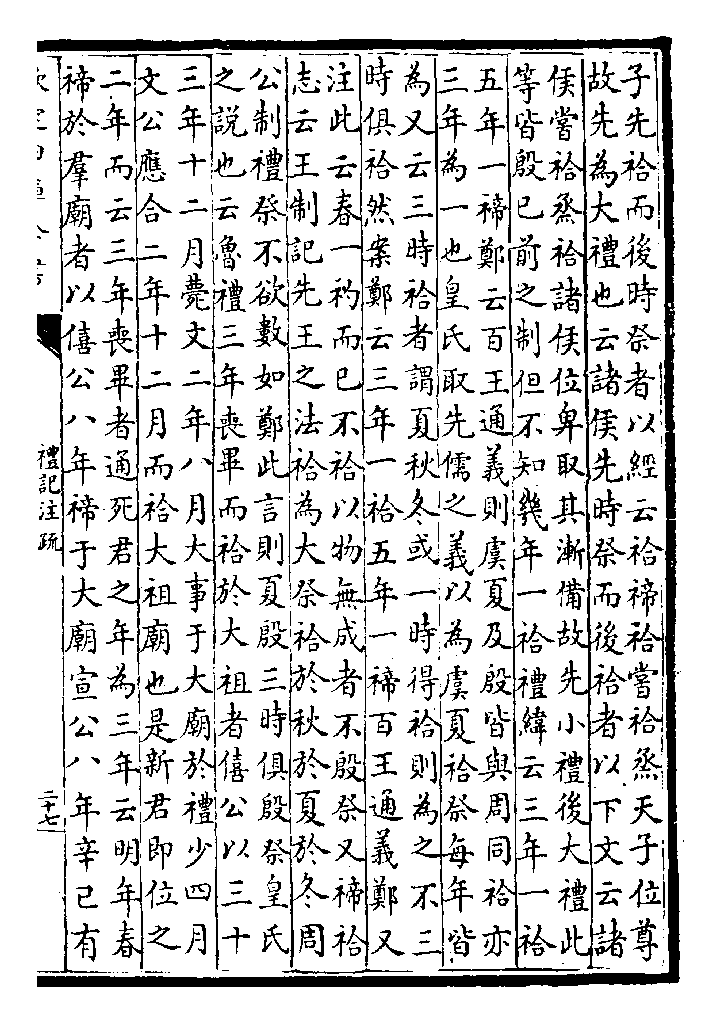 子先祫而後時祭者以經云祫禘祫嘗祫烝天子位尊
故先為大禮也云諸侯先時祭而後祫者以下文云諸
侯嘗祫烝祫諸侯位卑取其漸備故先小禮後大禮此
等皆殷已前之制但不知幾年一祫禮緯云三年一祫
五年一禘鄭云百王通義則虞夏及殷皆與周同祫亦
三年為一也皇氏取先儒之義以為虞夏祫祭每年皆
為又云三時祫者謂夏秋冬或一時得祫則為之不三
時俱祫然案鄭云三年一祫五年一禘百王通義鄭又
注此云春一礿而已不祫以物無成者不殷祭又禘祫
志云王制記先王之法祫為大祭祫於秋於夏於冬周
公制禮祭不欲數如鄭此言則夏殷三時俱殷祭皇氏
之說也云魯禮三年喪畢而祫於大祖者僖公以三十
三年十二月薨文二年八月大事于大廟於禮少四月
文公應合二年十二月而祫大祖廟也是新君即位之
二年而云三年喪畢者通死君之年為三年云明年春
禘於羣廟者以僖公八年禘于大廟宣公八年辛巳有
禮記注疏
二十七